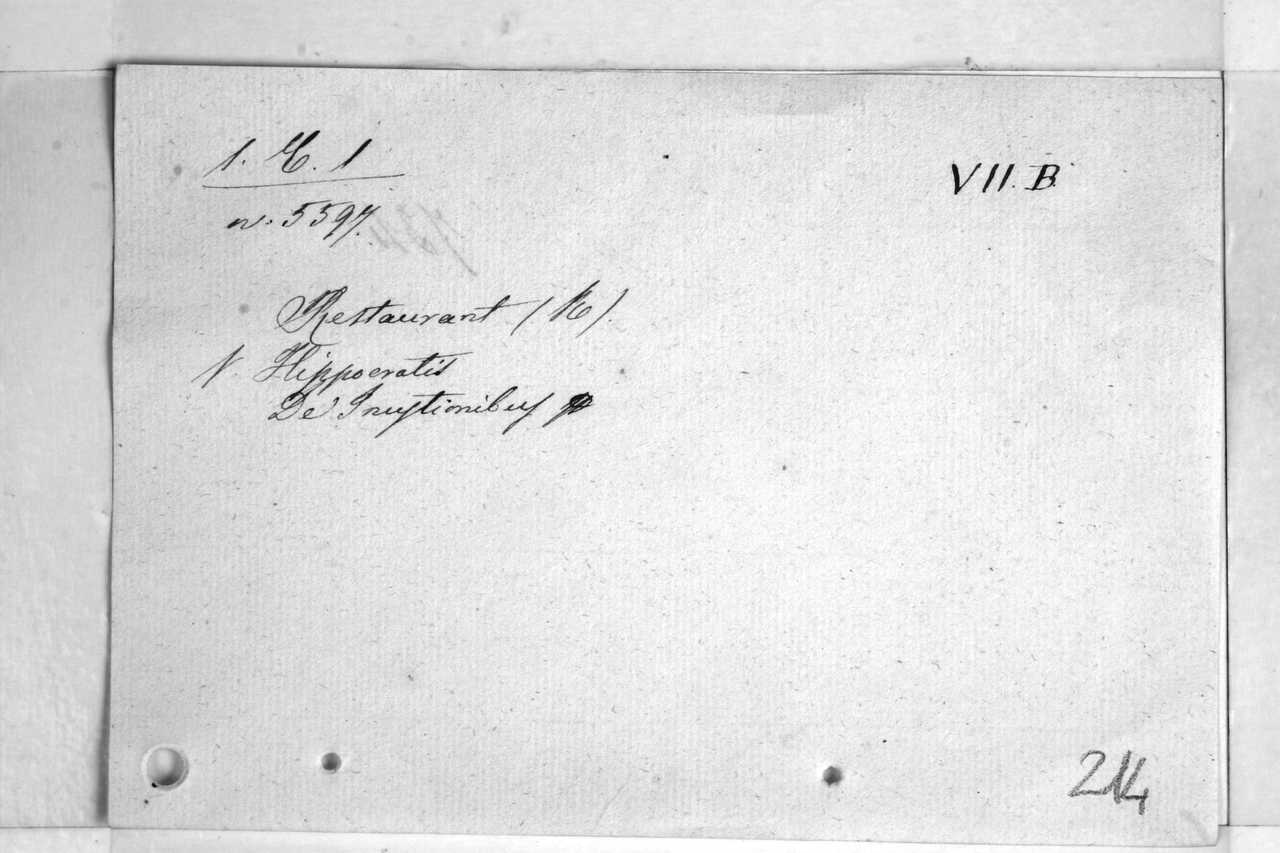 1. E. 1
VII. B.
n. 5597.
Restaurant (R)
V. Hippocratis
De Inustionibus
214